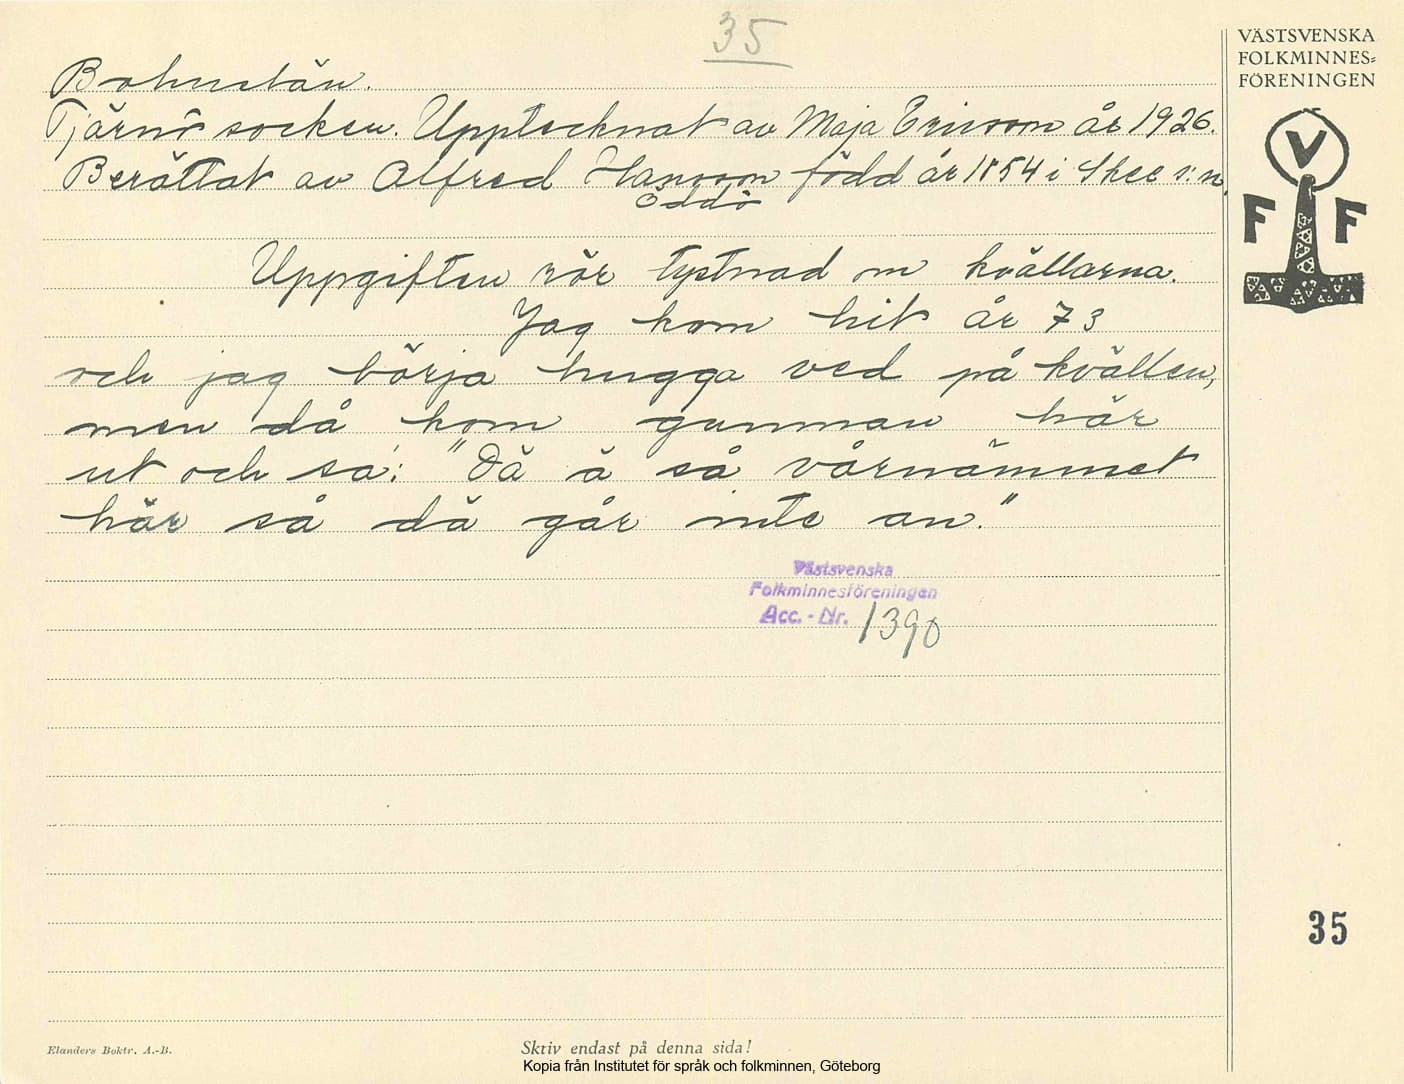 35
VÄSTSVENSKA
FOLKMINNES=
FÖRENINGEN
Bohuslän.
Tjärnö socken. Upptecknat av Maja Ericson år 1926.
Berättat av Alfred Hansson född år 1854 i Skee s:n.
Öddö
V
F F
Uppgiften rör tystnad om kvällarna.
Jag kom hit år 73
och jag börja hugga ved på kvällen,
men då kom gumman här
ut och sa: "Dä ä så vårnämmet
här så dä går inte an."
Västsvenska
Folkminnesföreningen
Acc. - Nr. 1390
35
Elanders Boktr. A.-B.
Skriv endast på denna sida!
Kopia från Institutet för språk och folkminnen, Göteborg